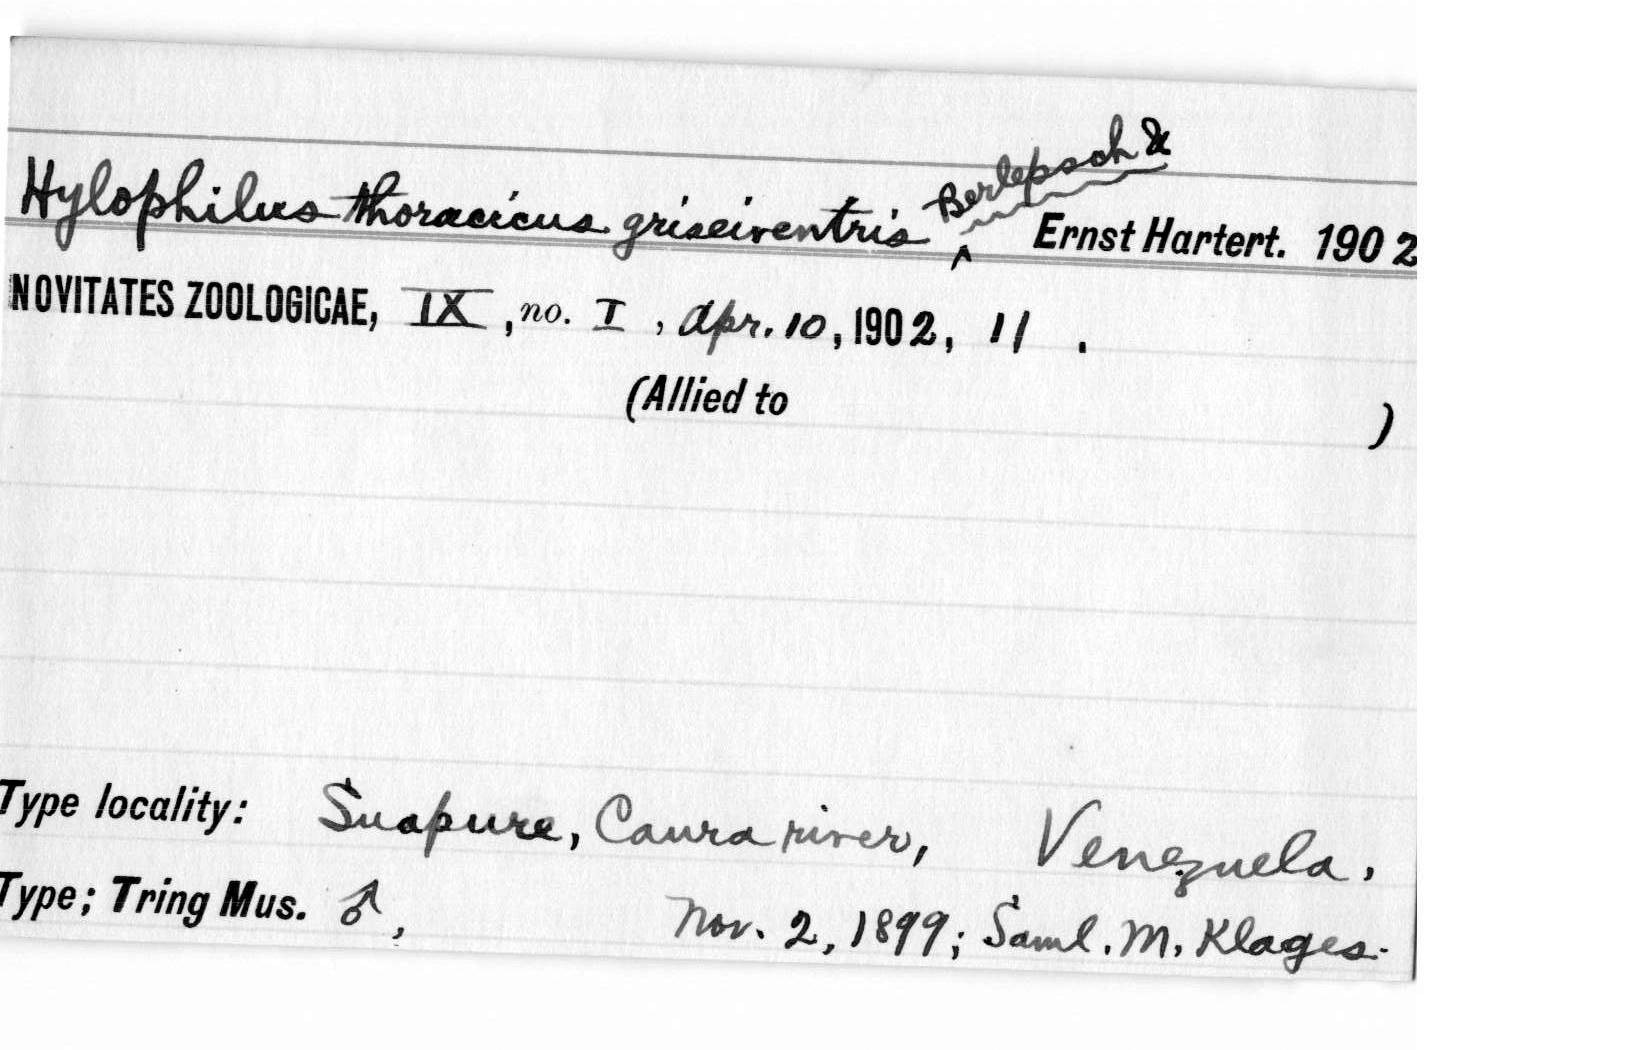 Hylophilus thoracicus griseiventris ^ Berlepsch & Ernst Hartert. 1902
NOVITATES ZOOLOGICAE, IX, no. I, Apr. 10, 1902, 11.
(Allied to )
Type locality: Suapure, Caura river, Venezuela.
Type; Tring Mus. ♂, Nov. 2, 1899; Saml. M. Klages.